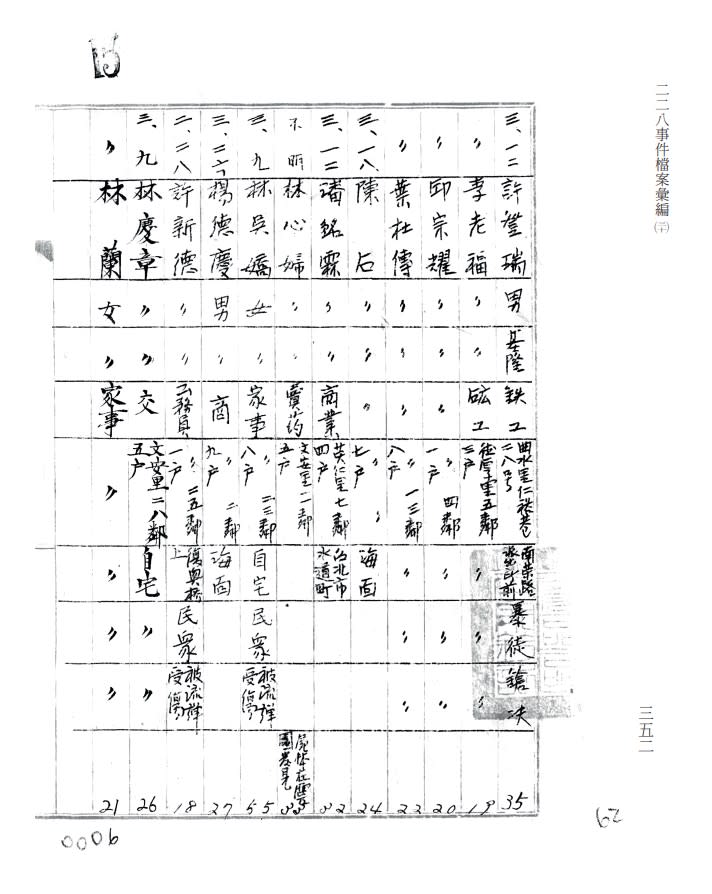 二二八事件檔案彙編(二十)
三五二
三、一二 許登瑞 男 基隆 鉄工 曲水里仁祿巷二八号 南榮路派出所前 暴徒 鎗决 35
〃 李老福 〃 〃 砿工 住厚里五鄰三户 〃 〃 〃 19
〃 邱宗耀 〃 〃 〃 〃 四鄰一户 〃 〃 〃 20
〃 葉杜傳 〃 〃 〃 〃 一三鄰八户 〃 〃 〃 22
三、一八 陳石 〃 〃 〃 〃 〃 七户 海面 24
三、一二 潘銘霖 〃 〃 商業 英仁里七鄰四户 台北市水道町 32
不明 林心婦 〃 〃 賣药 文安里一鄰五户 33
三、九 林吳嬌 女 〃 家事 〃 二三鄰八户 自宅 民衆 被流弹受傷 55
三、二六 楊德慶 男 〃 商 〃 二鄰九户 海面 27
二、二八 許新德 〃 〃 公務員 〃 二五鄰一户 復興橋上 民衆 被流弹受傷 18
三、九 林慶章 〃 〃 交 文安里二八鄰五户 自宅 〃 〃 26
〃 林蘭 女 〃 家事 〃 〃 〃 〃 21
15
62
0006